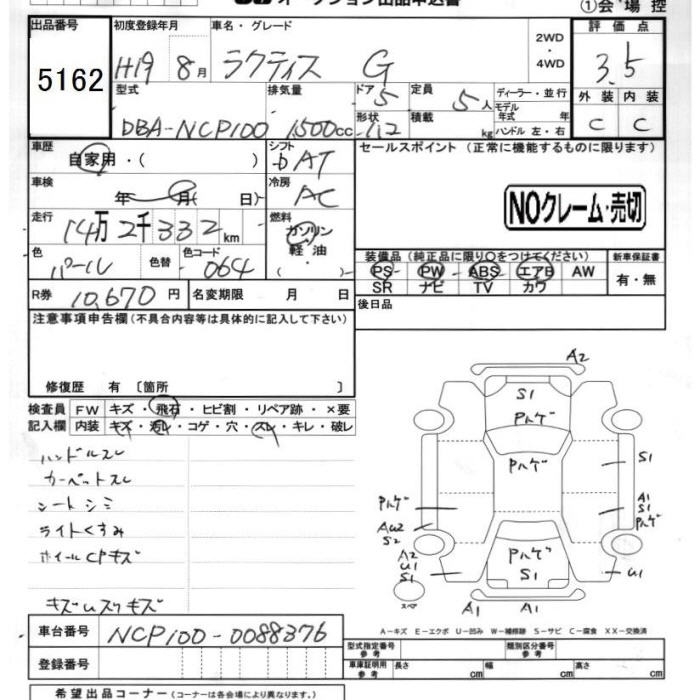 オークション出品申込書
①会場控
出品番号 初度登録年月 車名・グレード 評価点
5162 H19 8月 ラクティス G 2WD・4WD 3.5
型式 排気量 ドア 5 定員 5人 ディーラー・並行 外装 内装
DBA-NCP100 1500cc 形状 積載 kg モデル年式 年 C C
ハンドル 左・右
車歴 自家用・( ) シフト AT セールスポイント(正常に機能するものに限ります)
車検 年 月( 日) 冷房 AC NOクレーム・売切
走行 14万2千332km 燃料 ガソリン
軽油
( )
色 パール 色替 色コード 064 装備品(純正品に限り○をつけてください) 新車保証書
PS PW ABS エアB AW 有・無
SR ナビ TV カワ
R券 10,670円 名変期限 月 日 後日品
注意事項申告欄(不具合内容等は具体的に記入して下さい)
修復歴 有 〔箇所 〕
検査員 FW キズ・飛石・ヒビ割・リペア跡・×要
記入欄 内装 キズ・汚レ・コゲ・穴・スレ・キレ・破レ
ハンドルスレ
カーペットスレ
シートシミ
ライトくすみ
ホイールCPキズ
A2
S1
Pハゲ
Pハゲ
S1
Pハゲ
A1
S1
Pハゲ
AW2
S2
A2
U1
S1
Pハゲ
S1
U1
スペア
A1
A1
A-キズ E-エクボ U-凹み W-補修跡 S-サビ C-腐食 XX-交換済
車台番号 NCP100-0088376
登録番号
型式指定番号 参考 類別区分番号 参考
車庫証明用 参考 長さ cm 幅 cm 高さ cm
希望出品コーナー(コーナーは各会場により異なります。)